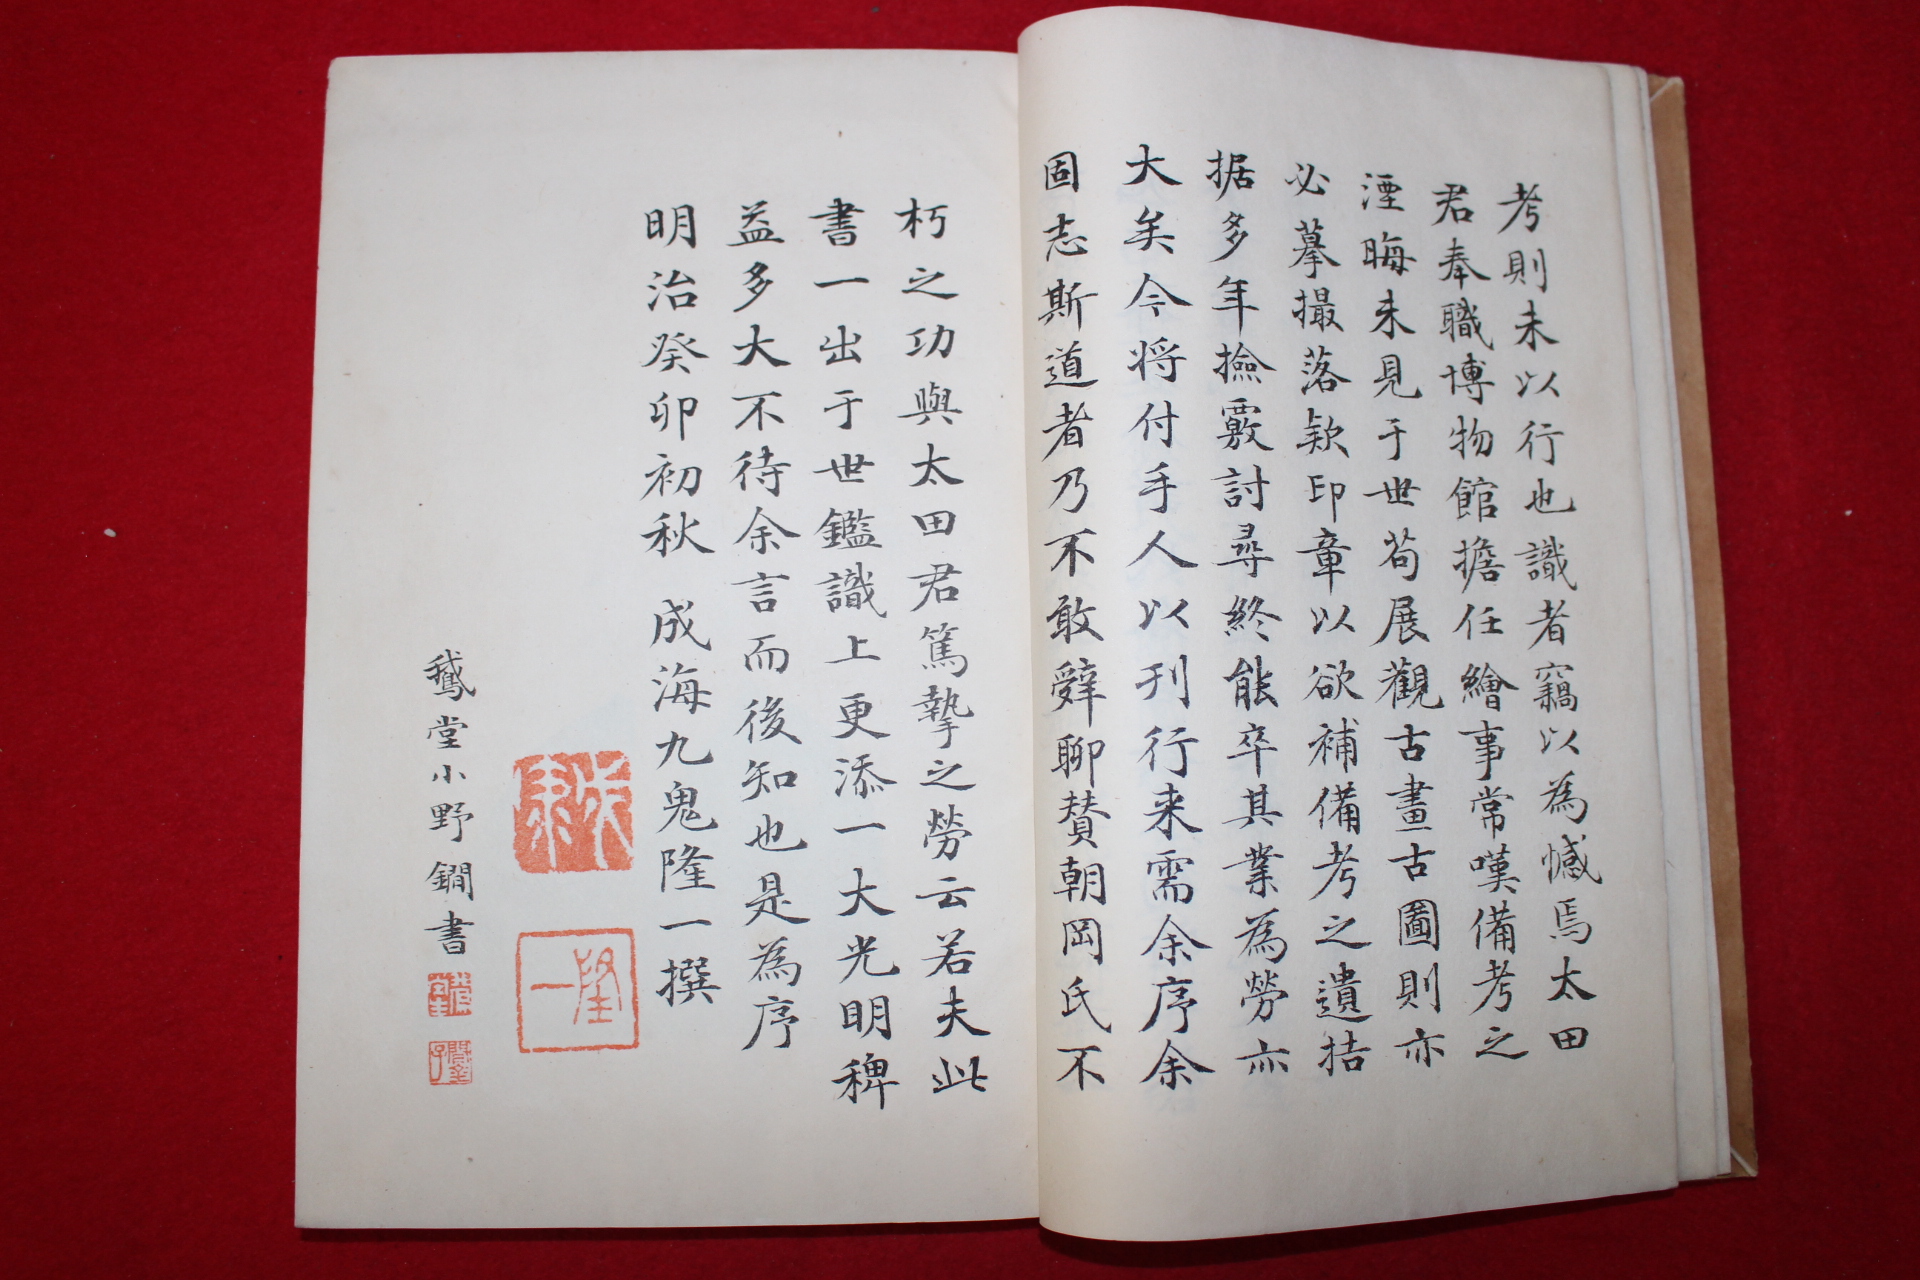 考則未以行也識者竊以為憾焉太田
君奉職博物館擔任繪事常嘆備考之
湮晦未見于世苟展觀古畫古圖則亦
必摹撮落欵印章以欲補備考之遺拮
据多年撿覈討尋終能卒其業為勞亦
大矣今将付手人以刊行来需余序余
固志斯道者乃不敢辤聊賛朝岡氏不
朽之功與太田君篤摯之勞云若夫此
書一出于世鑑識上更添一大光明稗
益多大不待余言而後知也是為序
明治癸卯初秋 成海九鬼隆一撰
隆一
鵞堂小野鐗書
鵞堂